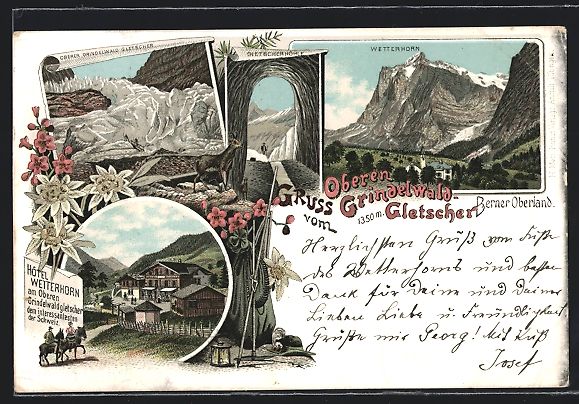 OBERER GRINDELWALD GLETSCHER
GLETSCHERHÖHLE
WETTERHORN
GRUSS
vom
Oberen
Grindelwald-
1350 m. Gletscher
Berner Oberland.
HÔTEL
WETTERHORN
am Oberen
Grindelwaldgletscher
dem interessantesten
der Schweiz.
Herzlichsten Gruß vom Fuße
des Wetterhorns und besten
Dank für Deine und Deiner
Lieben Liebe u. Freundlichkeit
Grüße mir Georg! Mit Kuß
Josef